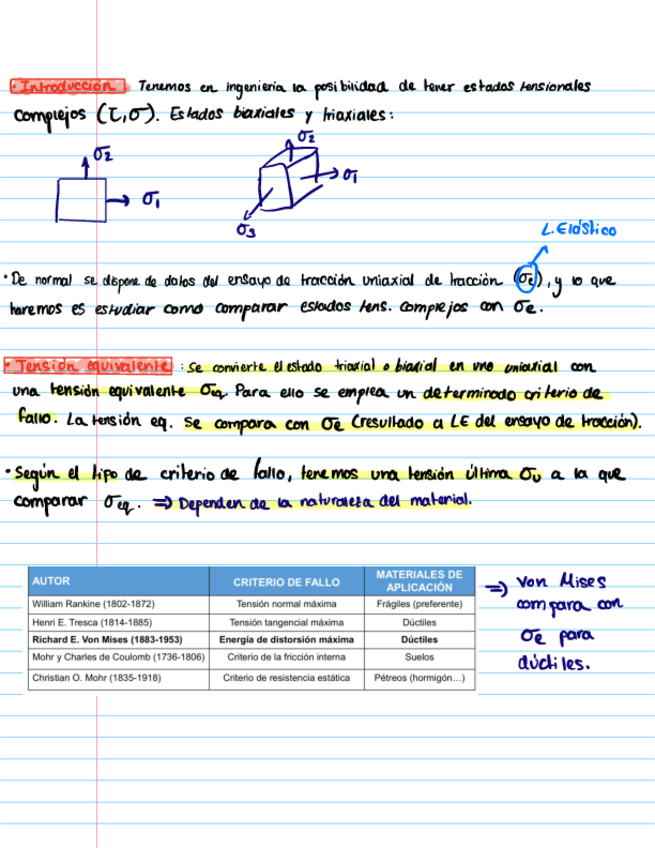 • Introducción Tenemos en ingeniería la posibilidad de tener estados tensionales
complejos (τ,σ). Estados biaxiales y triaxiales:
σ2
σ1
σ2
σ1
σ3
L.Elástico
• De normal se dispone de datos del ensayo de tracción uniaxial de tracción (σe), y lo que
haremos es estudiar como comparar estados tens. complejos con σe.
• Tensión equivalente : Se convierte el estado triaxial o biaxial en uno uniaxial con
una tensión equivalente σeq. Para ello se emplea un determinado criterio de
fallo. La tensión eq. se compara con σe (resultado a LE del ensayo de tracción).
• Según el tipo de criterio de fallo, tenemos una tensión última σu a la que
comparar σeq. ⇒ Dependen de la naturaleza del material.
AUTOR CRITERIO DE FALLO MATERIALES DE APLICACIÓN
William Rankine (1802-1872) Tensión normal máxima Frágiles (preferente)
Henri E. Tresca (1814-1885) Tensión tangencial máxima Dúctiles
Richard E. Von Mises (1883-1953) Energía de distorsión máxima Dúctiles
Mohr y Charles de Coulomb (1736-1806) Criterio de la fricción interna Suelos
Christian O. Mohr (1835-1918) Criterio de resistencia estática Pétreos (hormigón…)
⇒ Von Mises
compara con
σe para
dúctiles.